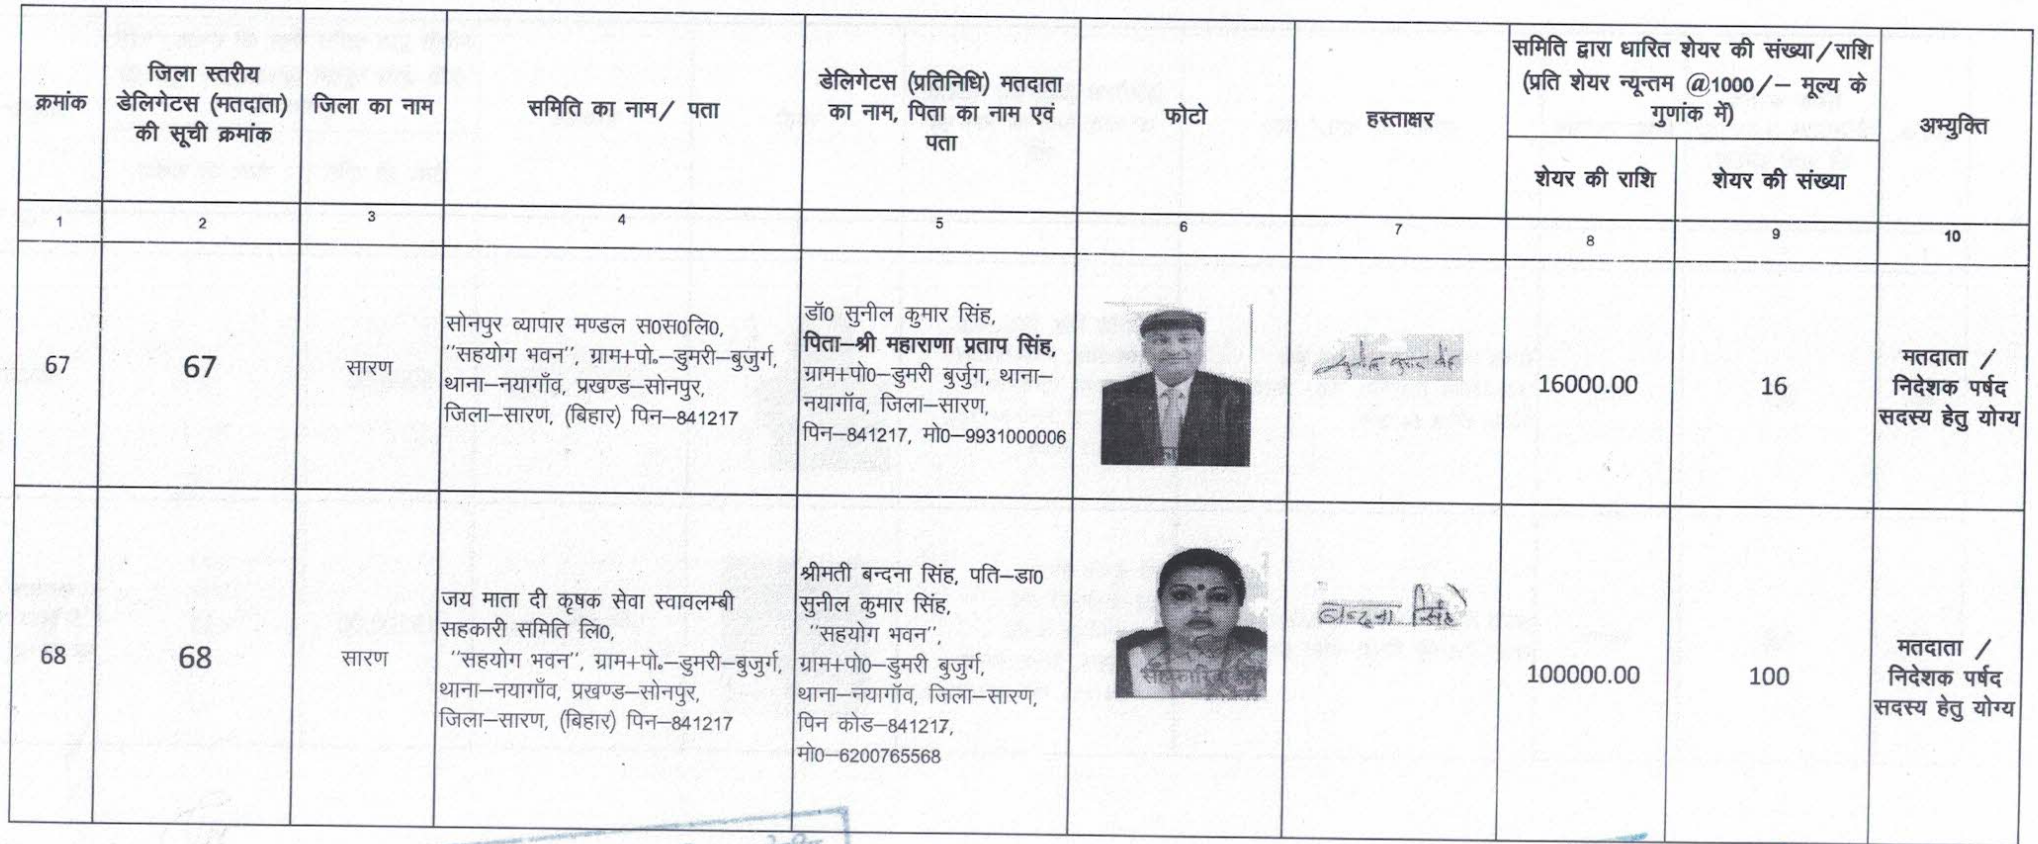 क्रमांक
जिला स्तरीय
डेलिगेटस (मतदाता)
की सूची क्रमांक
जिला का नाम
समिति का नाम/ पता
डेलिगेटस (प्रतिनिधि) मतदाता
का नाम, पिता का नाम एवं
पता
फोटो
हस्ताक्षर
समिति द्वारा धारित शेयर की संख्या/राशि
(प्रति शेयर न्यून्तम @1000/– मूल्य के
गुणांक में)
शेयर की राशि
शेयर की संख्या
अभ्युक्ति
1
2
3
4
5
6
7
8
9
10
67
67
सारण
सोनपुर व्यापार मण्डल स0स0लि0,
"सहयोग भवन", ग्राम+पो.–डुमरी–बुजुर्ग,
थाना–नयागाँव, प्रखण्ड–सोनपुर,
जिला–सारण, (बिहार) पिन–841217
डॉ0 सुनील कुमार सिंह,
पिता–श्री महाराणा प्रताप सिंह,
ग्राम+पो0–डुमरी बुर्जुग, थाना–
नयागॉव, जिला–सारण,
पिन–841217, मो0–9931000006
16000.00
16
मतदाता /
निदेशक पर्षद
सदस्य हेतु योग्य
68
68
सारण
जय माता दी कृषक सेवा स्वावलम्बी
सहकारी समिति लि0,
"सहयोग भवन", ग्राम+पो.–डुमरी–बुजुर्ग,
थाना–नयागाँव, प्रखण्ड–सोनपुर,
जिला–सारण, (बिहार) पिन–841217
श्रीमती बन्दना सिंह, पति–डा0
सुनील कुमार सिंह,
"सहयोग भवन",
ग्राम+पो0–डुमरी बुजुर्ग,
थाना–नयागॉव, जिला–सारण,
पिन कोड–841217,
मो0–6200765568
बन्दना सिंह
100000.00
100
मतदाता /
निदेशक पर्षद
सदस्य हेतु योग्य